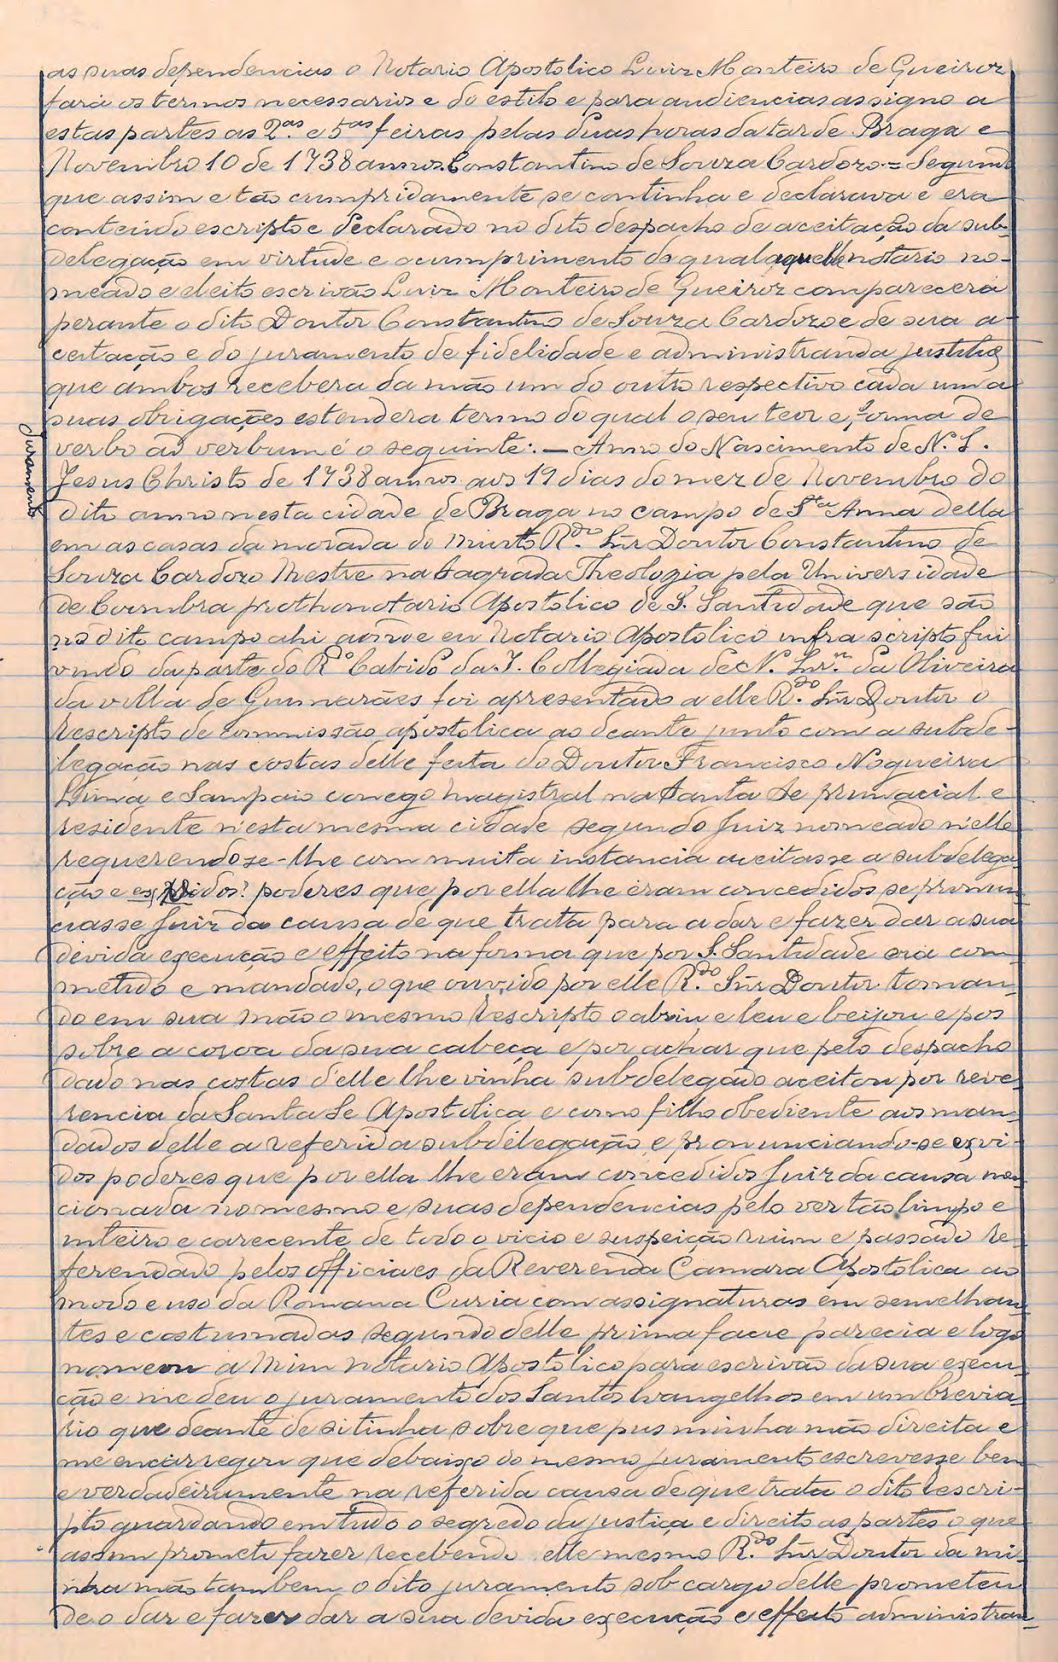 as suas dependencias o Notario Apostolico Luiz Monteiro de Gueiroz
fará os termos necessarios e do estilo e para audiencias assigno a
estas partes as 2.as e 5.as feiras pelas duas horas da tarde Braga e
Novembro 10 de 1738 annos. Constantino de Souza Cardozo = Segundo
que assim e tão cumpridamente se continha e declarava e era
conteudo escripto e declarado no dito despacho de aceitação da sub-
delegação em virtude e o cumprimento do qual aquelle notario no-
meado e eleito escrivão Luiz Monteiro de Gueiroz comparecera
perante o dito Doutor Constantino de Souza Cardozo e de sua a-
ceitação e do juramento de fidelidade e administranda justitia
que ambos recebera da mão um do outro respectivo cada um a
suas obrigações estendera termo do qual o seu teor e forma de
verbo ad verbum é o seguinte: — Anno do Nascimento de N. S.
Juramento
Jesus Christo de 1738 annos aos 19 dias do mez de Novembro do
dito anno nesta cidade de Braga no campo de S.ta Anna della
em as casas da morada do muito R.do Snr Doutor Constantino de
Souza Cardozo Mestre na Sagrada Theologia pela Universidade
de Coimbra prothonotario Apostolico de S. Santidade que são
no dito campo ahi aonde eu Notario Apostolico infra scripto fui
vindo da parte do R.do Cabido da I. Collegiada de N. Snr.a da Oliveira
da villa de Guimarães foi apresentado a elle R.do Snr Doutor o
rescripto de commissão apostolica ao deante junto com a subde-
legação nas costas delle feita do Doutor Francisco Nogueira
Lima e Sampaio conego magistral na Santa Se primacial e
residente n'esta mesma cidade segundo Juiz nomeado n'elle
requerendo-se-lhe com muita instancia aceitasse a subdelega-
ção e os ? poderes que por ella lhe eram concedidos se pronun-
ciasse Juiz da causa de que trata para a dar e fazer dar a sua
devida execução e effeito na forma que por S. Santidade era com-
metido e mandado, o que ouvido por elle R.do Snr Doutor toman-
do em sua mão o mesmo rescripto o abriu e leu e beijou e pos
sobre a coroa da sua cabeça e por achar que pelo despacho
dado nas costas d'elle lhe vinha subdelegado aceitou por reve-
rencia da Santa Se Apostolica e como filho obediente aos man-
dados delle a referida subdelegação e pronunciando-se exvi-
dos poderes que por ella lhe eram concedidos Juiz da causa men-
cionada no mesmo e suas dependencias pelo ver tão limpo e
inteiro e carecente de todo o vicio e suspeição ruim e passado re-
ferendado pelos officiaes da Reverenda Camara Apostolica ao
modo e uso da Romana Curia com assignaturas em semelhan-
tes e costumadas segundo delle prima facie parecia e logo
nomeou a mim notario Apostolico para escrivão da sua execu-
ção e me deu o juramento dos Santos Evangelhos em um brevia-
rio que deante de si tinha sobre que pus minha mão direita e
me encarregou que debaixo do mesmo juramento escrevesse bem
e verdadeiramente na referida causa de que trata o dito rescri-
pto guardando em tudo o segredo da justiça e direito as partes o que
assim prometi fazer recebendo elle mesmo R.do Snr Doutor da mi-
nha mão tambem o dito juramento sob cargo delle prometeu
de o dar e fazer dar a sua devida execução e effeito administran-